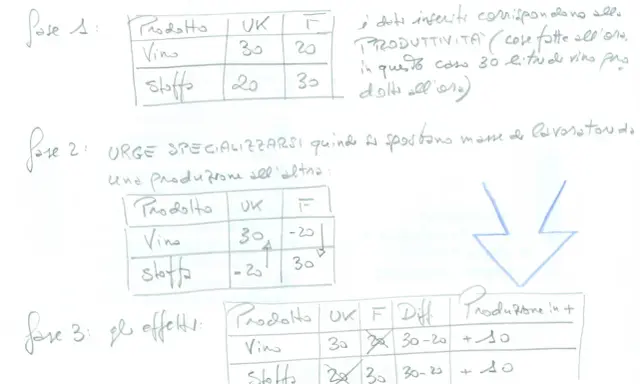 fase 1:
Prodotto UK F
Vino 30 20
Stoffa 20 30
i dati inseriti corrispondono alla
PRODUTTIVITÀ (cose fatte all'ora,
in questo caso 30 litri di vino pro
dotti all'ora)
fase 2: URGE SPECIALIZZARSI quindi si spostano masse di lavoratori da
una produzione all'altra:
Prodotto UK F
Vino 30 -20
Stoffa -20 30
fase 3: gli effetti:
Prodotto UK F Diff Produzione in +
Vino 30 20 30-20 +10
Stoffa 20 30 30-20 +10